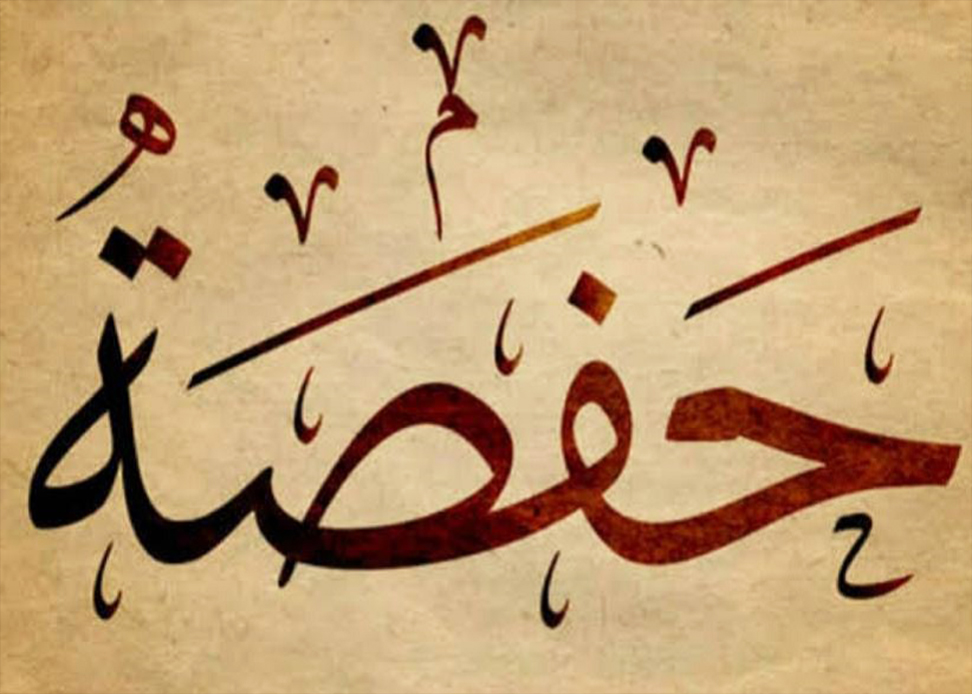 حفصة